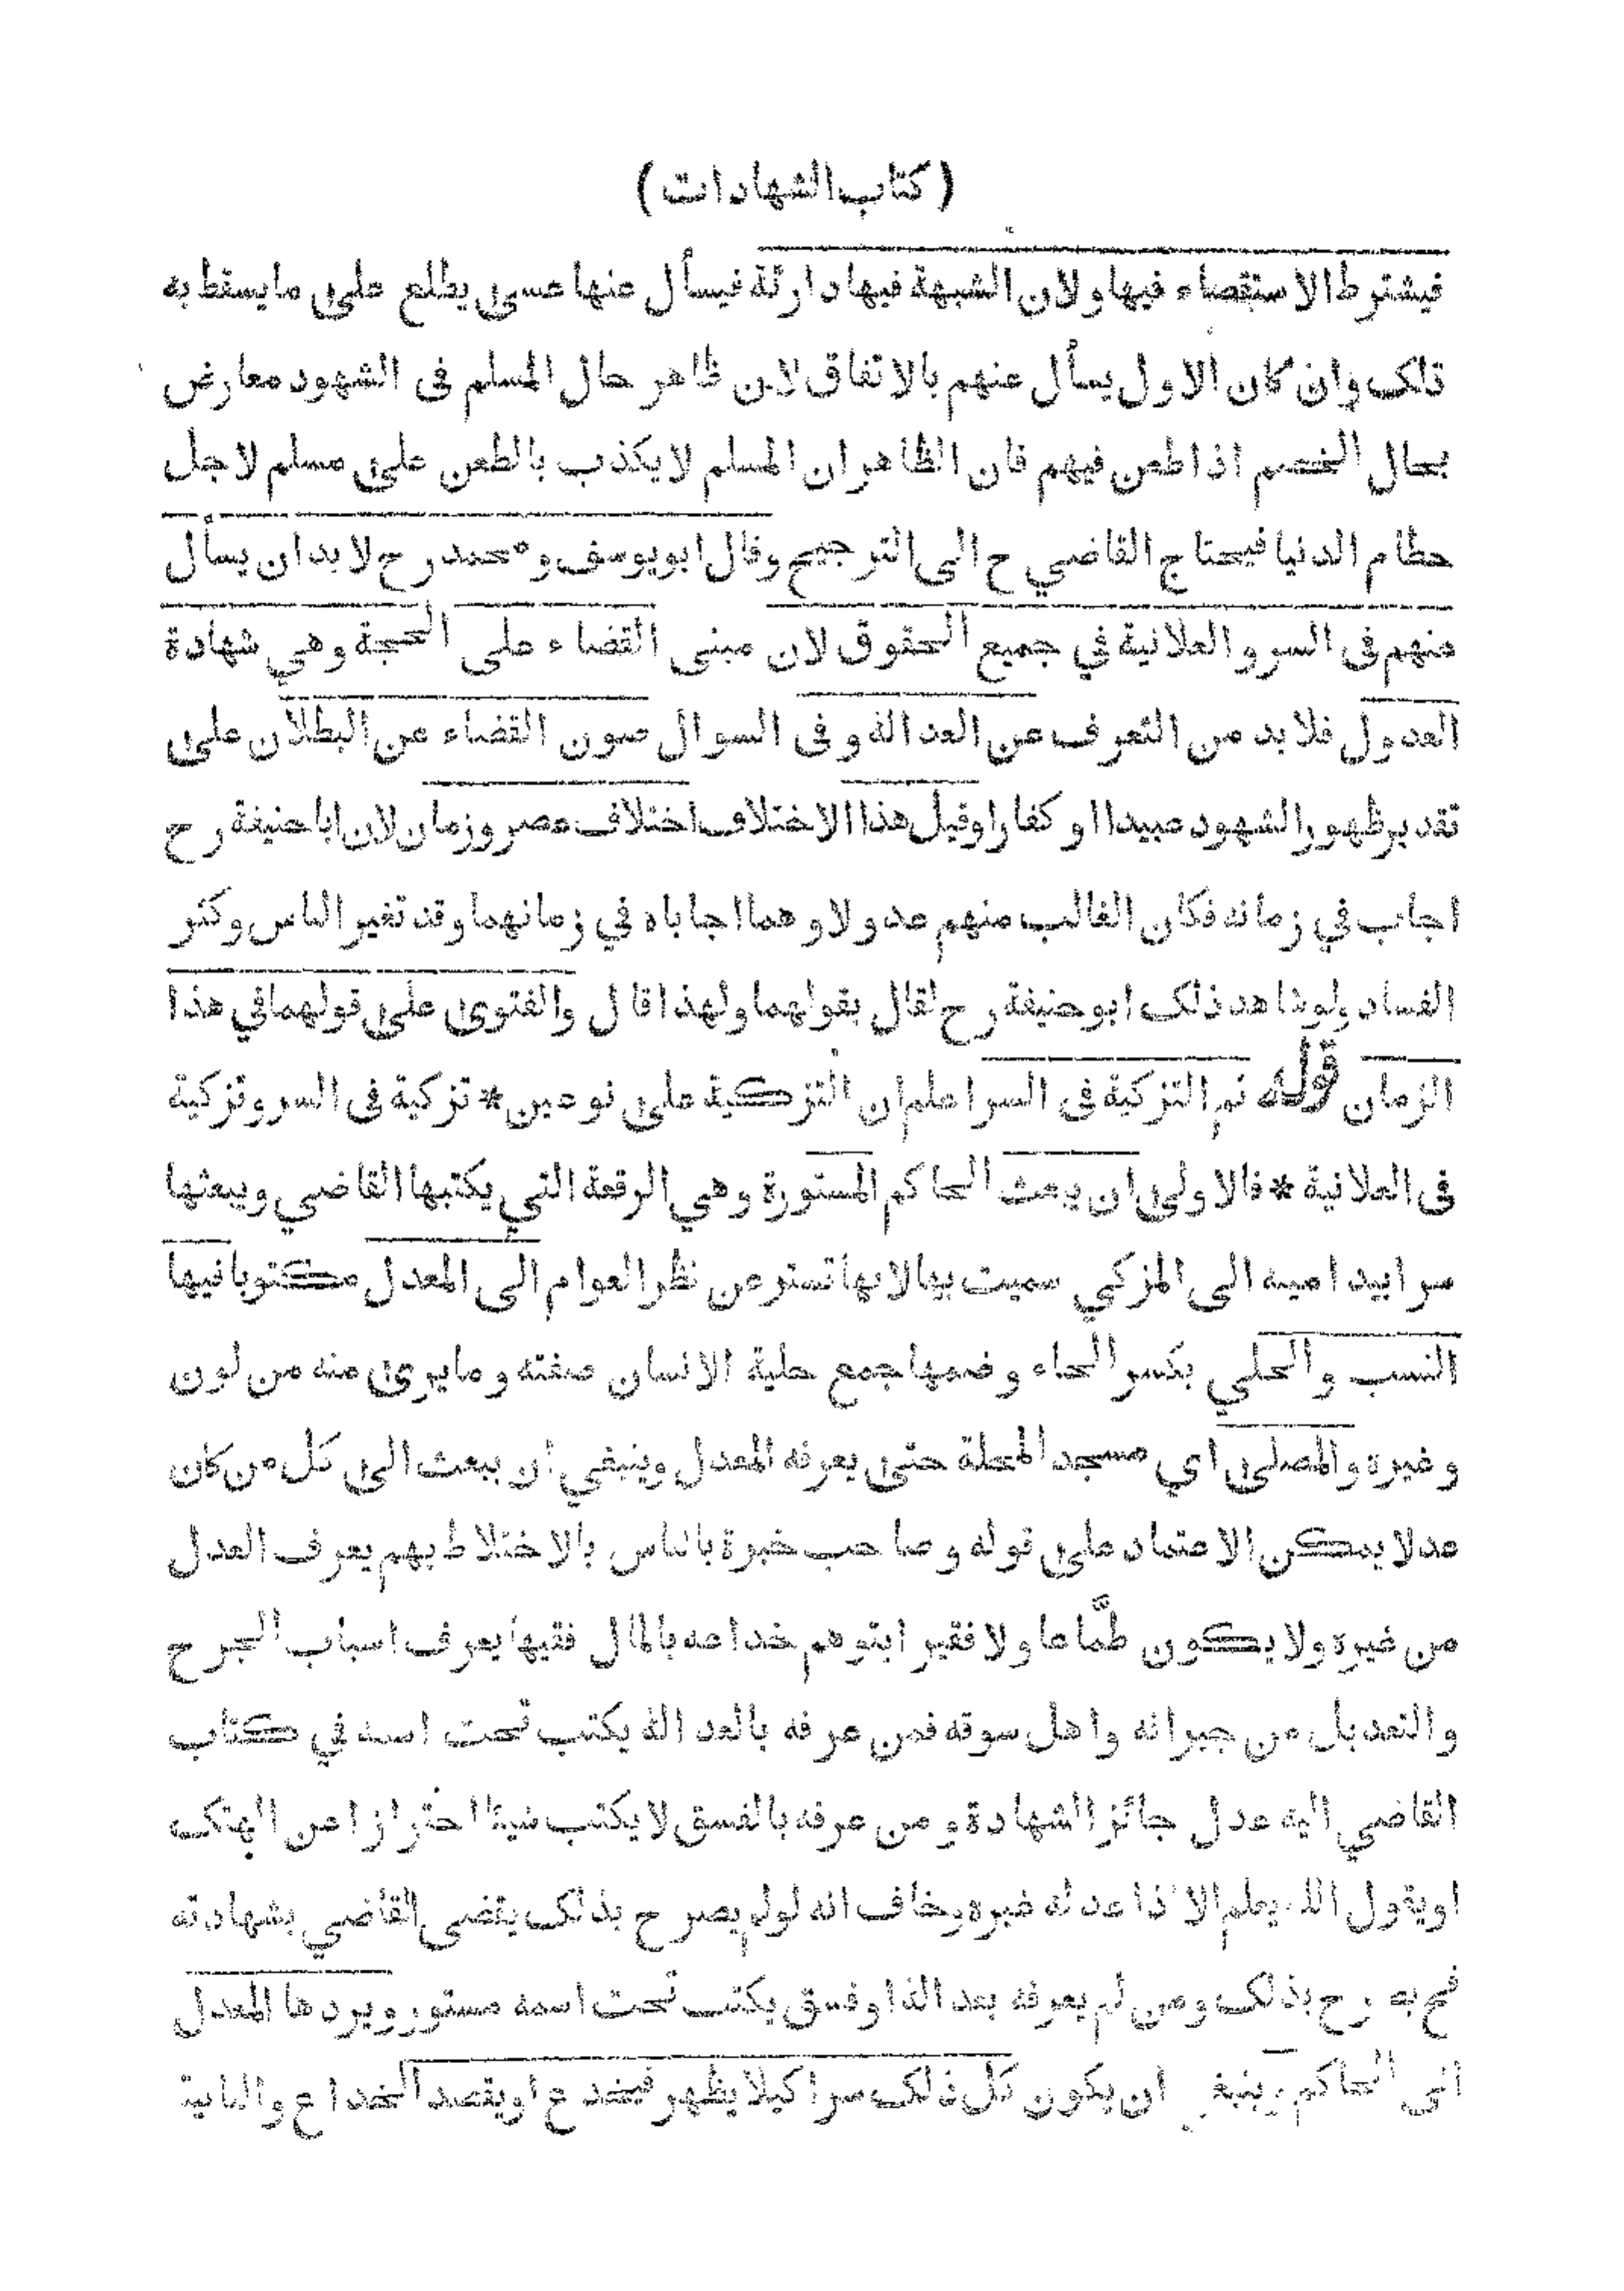 ( كتاب الشهادات )
فيشترط الاستقصاء فيها ولان الشبهة فيها دارئة فيسأل عنها عسى يطلع على ما يسقط به
ذلك وان كان الاول يسأل عنهم بالاتفاق لان ظاهر حال المسلم فى الشهود معارض
بحال الخصم اذا طعن فيهم فان الظاهر ان المسلم لا يكذب بالطعن على مسلم لاجل
حطام الدنيا فيحتاج القاضي ح الى الترجيح وقال ابويوسف ومحمد رح لا بد ان يسأل
عنهم فى السر و العلانية في جميع الحقوق لان مبنى القضاء على الحجة وهي شهادة
العدول فلا بد من التعرف عن العدالة و فى السوال صون القضاء عن البطلان على
تقدير ظهور الشهود عبيدا او كفارا وقيل هذا الاختلاف اختلاف عصر وزمان لان اباحنيفة رح
اجاب في زمانه فكان الغالب منهم عدولا و هما اجاباه في زمانهما وقد تغير الناس وكثر
الفساد ولو شاهد ذلك ابو حنيفة رح لقال بقولهما ولهذا قال والفتوى على قولهما في هذا
الزمان قوله ثم التزكية فى السر اعلم ان التزكية على نوعين * تزكية فى السر و تزكية
فى العلانية * فالاولى ان يبعث الحاكم المستورة وهي الرقعة التي يكتبها القاضي ويبعثها
سرا بيد امينه الى المزكي سميت بها لانها تستر عن نظر العوام الى المعدل مكتوبا فيها
النسب والحلي بكسر الحاء وضمها جمع حلية الانسان صفته وما يرى منه من لون
وغيره والمصلى اي مسجد المحلة حتى يعرفه المعدل وينبغي ان يبعث الى كل من كان
عدلا يمكن الاعتماد على قوله و صاحب خبرة بالناس بالاختلاط بهم يعرف العدل
من غيره ولا يكون طمّاعا ولا فقيرا يتوهم خداعه بالمال فقيها يعرف اسباب الجرح
والتعديل من جيرانه واهل سوقه فمن عرفه بالعدالة يكتب تحت اسمه في كتاب
القاضي اليه عدل جائز الشهادة و من عرفه بالفسق لا يكتب شيئا احترازا عن الهتك
او يقول الله يعلم الا اذا عدله غيره وخاف انه لو لم يصرح بذلك يقضى القاضي بشهادته
فح يصرح بذلك ومن لم يعرفه بعدالة او فسق يكتب تحت اسمه مستور ويردها المعدل
الى الحاكم وينبغي ان يكون كل ذلك سرا كيلا يظهر فيخدع او يقصد الخداع والثانية